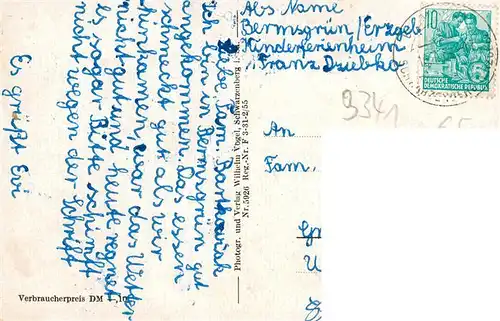 Liebe Fam. Bartkowiak
ich bin in Bermsgrün gut
angekommen. Das essen
schmeckt gut als wir
hinkamen, war das Wetter
nicht gut und heute regnet
es sogar. Bitte schimpft
nicht wegen der Schrift
Es grüßt Evi
Verbraucherpreis DM
Photogr. und Verlag Wilhelm Vogel, Schwarzenberg
Nr. 5926 Reg.-Nr. F 3-31-2/55
Abs. Name
Bermsgrün/Erzgeb
Kinderferienheim
Franz Dziebko
10
DEUTSCHE
DEMOKRATISCHE REPUBLIK
9341
An
Fam.